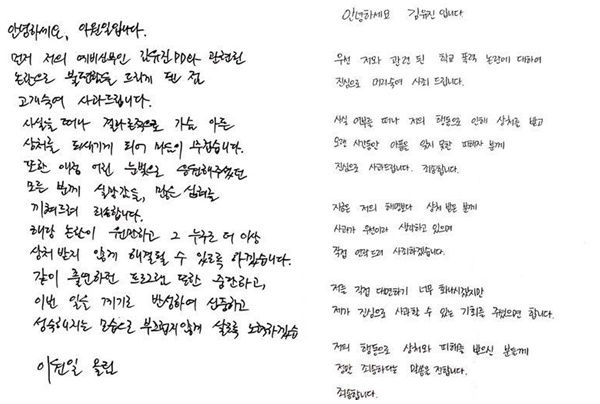 안녕하세요, 이원일입니다.
먼저 저의 예비신부인 김유진PD와 관련된
논란으로 불편함을 드리게 된 점
고개숙여 사과드립니다.
사실을 떠나 결과론적으로 가슴 아픈
상처를 되새기게 되어 마음이 무겁습니다.
또한 애정 어린 눈빛으로 응원해주셨던
모든 분께 실망감을, 많은 심려를
끼쳐드려 죄송합니다.
해당 논란이 원만하고 그 누구도 더 이상
상처 받지 않게 해결될 수 있도록 하겠습니다.
같이 출연하던 프로그램 또한 중단하고,
이번 일을 계기로 반성하여 신중하고
성숙해지는 모습으로 부끄럽지않게 살도록 노력하겠습
이원일 올림
안녕하세요 김유진 입니다
우선 저와 관련 된 학교 폭력 논란에 대하여
진심으로 머리숙여 사죄 드립니다.
사실 여부를 떠나 저의 행동으로 인해 상처를 받고
오랜 시간동안 아픔을 잊지 못한 피해자 분께
진심으로 사과드립니다. 죄송합니다.
지금은 저의 해명보다 상처 받은 분께
사과가 우선이라 생각하고 있으며
직접 연락드려 사죄하겠습니다.
저를 직접 대면하기 너무 화나시겠지만
제가 진심으로 사과할 수 있는 기회를 주셨으면 합니다.
저의 행동으로 상처와 피해를 받으신 분들께
정말 죄송하다는 말씀을 전합니다.
죄송합니다.